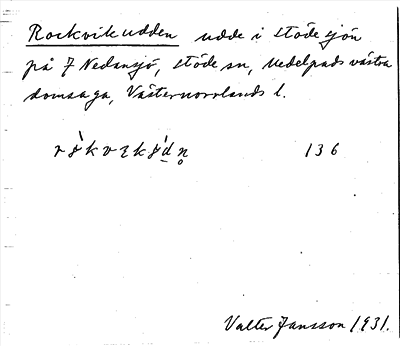 Rockvikudden udde i Stödesjön
på 7 Nedansjö, Stöde sn, Medelpads västra
domsaga, Västernorrlands l.
136
Valter Jansson 1931.